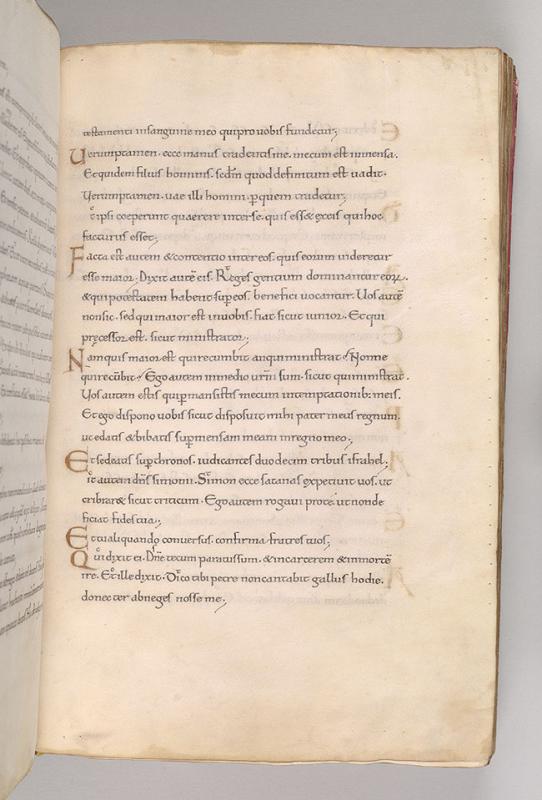 testamenti insanguine meo quipro uobis fundetur;
Uerumptamen. ecce manus tradentisme. mecum est inmensa.
Et quidem filius hominis. secdm quod definitum est uadit.
Ueruntamen. uae illi homini. p quem tradetur;
& ipsi coeperunt quaerere interse. quis ess& exeis qui hoc
facturus esset;
Facta est autem & contentio inter eos. quis eorum uideretur
esse maior; Dixit autē eis. Reges gentium dominantur eorꝝ.
& qui potestatem habent sup eos. benefici uocantur. Uos autē
nonsic. sed qui maior est in uobis. fiat sicut iunior. Et qui
pręcessor est. sicut ministrator;
Nam quis maior est qui recumbit an qui ministrat? Nonne
qui recūbit? Ego autem inmedio urm̄ sum. sicut qui ministrat.
Uos autem estis qui pmansistis mecum intemptationib; meis.
Et ego dispono uobis sicut disposuit mihi pater meus regnum.
ut edatis & bibatis sup mensam meam inregno meo;
Et sedeatis sup thronos. iudicantes duodecim tribus israhel;
ait autem dn̄s simoni. Simon ecce satanas expetiuit uos. ut
cribrar& sicut triticum. Ego autem rogaui prote. ut non de
ficiat fides tua;
Et tu aliquando conuersus. confirma fratres tuos;
Qui dixit ei. Dn̄e tecum paratus sum. & incarcerem & inmortē
ire. Et ille dixit. Dico tibi petre non cantabit gallus hodie.
donec ter abneges nosse me;